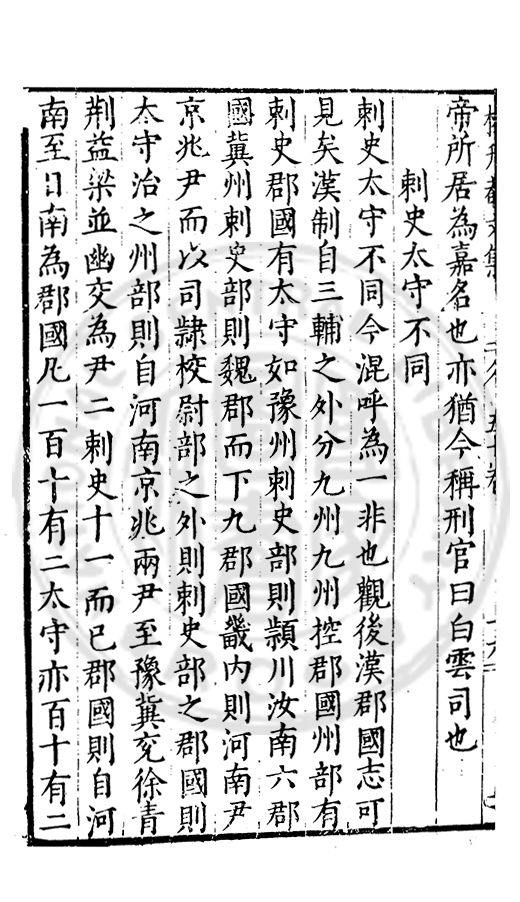 帝所居為嘉名也亦猶今稱刑官曰白雲司也
刺史太守不同
刺史太守不同今混呼為一非也觀後漢郡國志可
見矣漢制自三輔之外分九州九州控郡國州部有
刺史郡國有太守如豫州刺史部則潁川汝南六郡
國冀州刺史部則魏郡而下九郡國畿内則河南尹
京兆尹而以司隸校尉部之外則刺史部之郡國則
太守治之州部則自河南京兆兩尹至豫冀兖徐青
荆益梁並幽交為尹二刺史十一而已郡國則自河
南至日南為郡國凡一百十有二太守亦百十有二